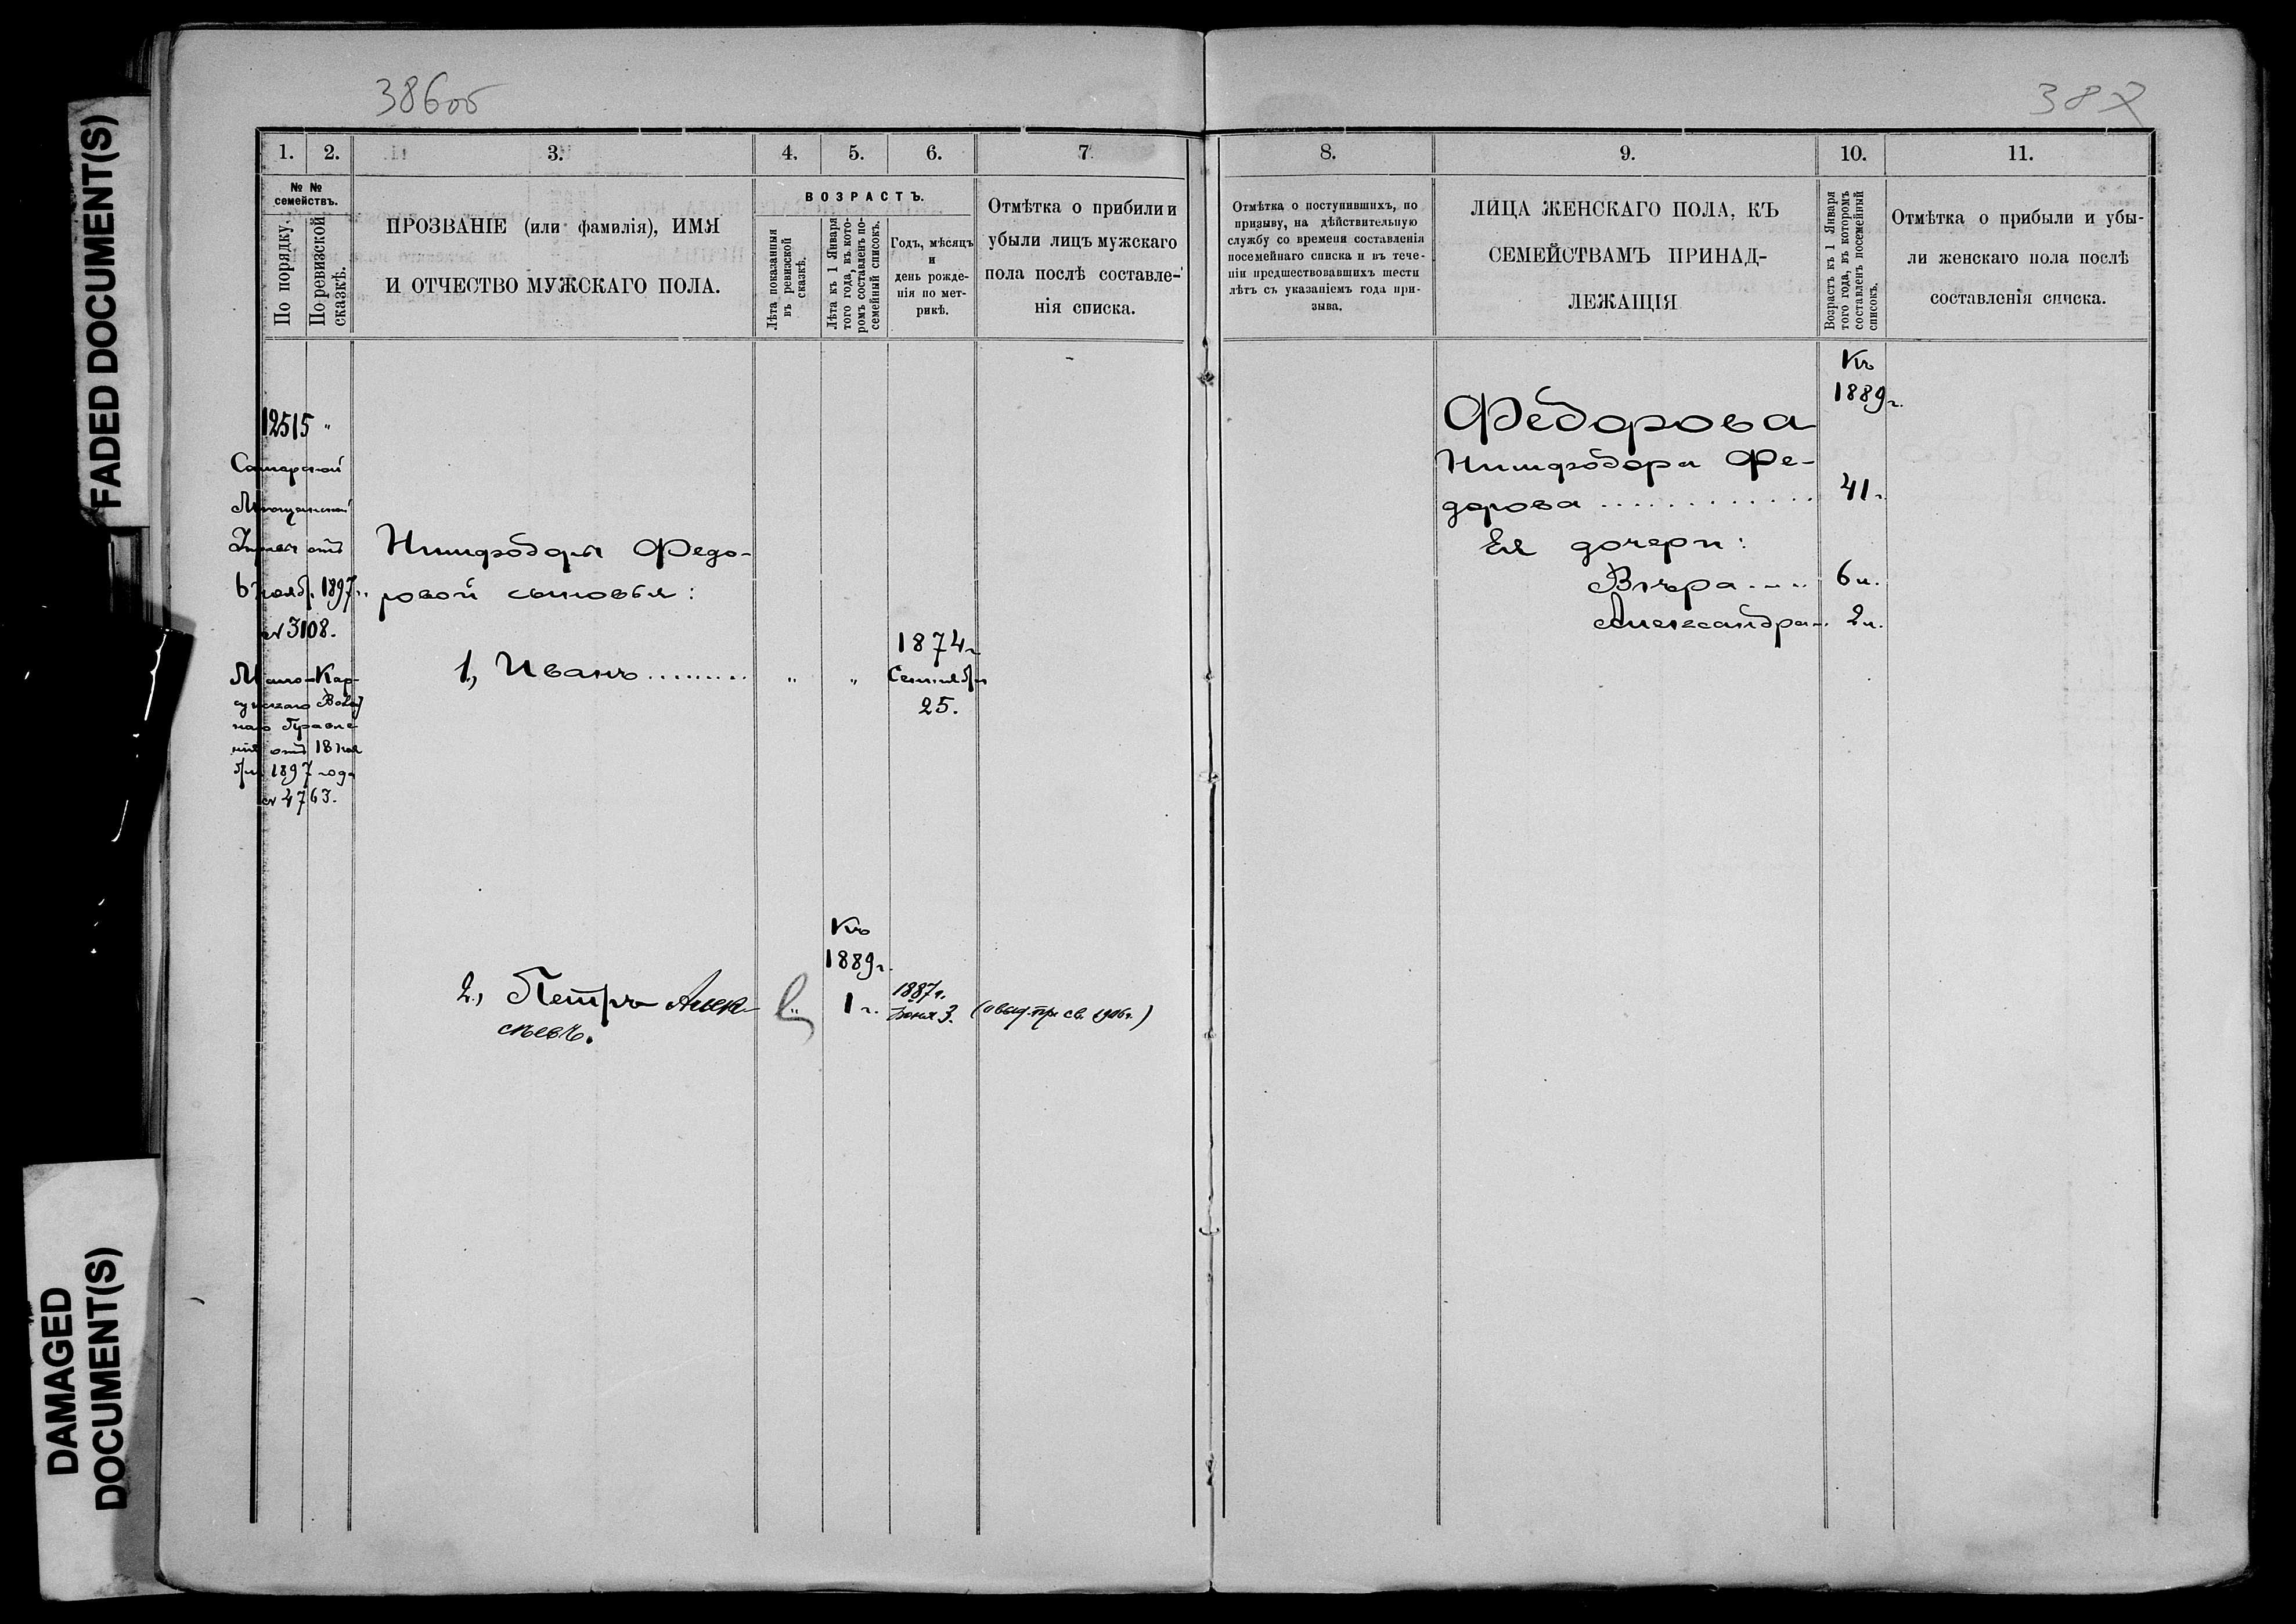 FADED DOCUMENT(S)
DAMAGED
DOCUMENT(S)
386об
387
1. 2. 3. 4. 5. 6. 7.
№ №
семействъ.
По порядку.
По ревизской
сказкѣ.
ПРОЗВАНІЕ (или фамилія), ИМЯ
И ОТЧЕСТВО МУЖСКАГО ПОЛА.
ВОЗРАСТЪ.
Лѣта показанныя
въ ревизской
сказкѣ.
Лѣта къ 1 Января
того года, въ кото-
ромъ составленъ по-
семейный списокъ.
Годъ, мѣсяцъ
и
день рожде-
нія по мет-
рикѣ.
Отмѣтка о прибыли и
убыли лицъ мужскаго
пола послѣ составле-
нія списка.
12515 "
Самарской
Мѣщанской
Управы отъ
6 нояб. 1897 г.
№ 3108.
Мало-Кар-
Волост
наго Правле
нія отъ 18 ноя
бря 1897 года
№ 4763.
Нимфодоры Федо-
ровой сыновья:
1, Иванъ......... " "
1874 г
Сентября
25.
Къ
1889 г.
2, Петръ Алек-
сѣевъ.
" 1 г.
1887 г.
Іюня 3.
8. 9. 10. 11.
Отмѣтка о поступившихъ, по
призыву, на дѣйствительную
службу со времени составленія
посемейнаго списка и въ тече-
ніи предшествовавшихъ шести
лѣтъ съ указаніемъ года при-
зыва.
ЛИЦА ЖЕНСКАГО ПОЛА, КЪ
СЕМЕЙСТВАМЪ ПРИНАД-
ЛЕЖАЩІЯ
Возрастъ къ 1 Января
того года, въ которомъ
составленъ посемейный
списокъ.
Отмѣтка о прибыли и убы-
ли женскаго пола послѣ
составленія списка.
Къ
1889 г.
Федорова
Нимфодора Фе-
дорова ............. 41 г.
Ея дочери:
Вѣра..... 6 л.
Александра... 2 л.